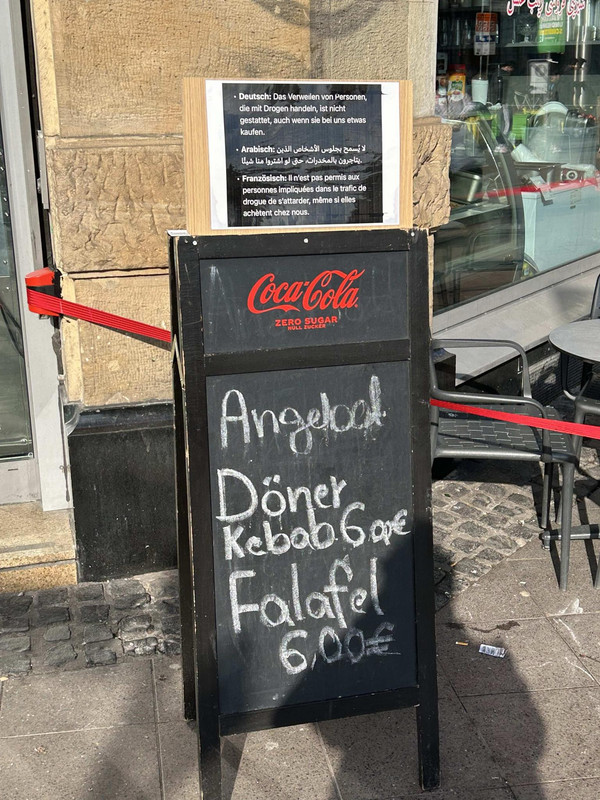 • Deutsch: Das Verweilen von Personen,
die mit Drogen handeln, ist nicht
gestattet, auch wenn sie bei uns etwas
kaufen.
• Arabisch: لا يُسمح بجلوس الأشخاص الذين
يتاجرون بالمخدرات، حتى لو اشتروا منا شيئًا.
• Französisch: Il n'est pas permis aux
personnes impliquées dans le trafic de
drogue de s'attarder, même si elles
achètent chez nous.
Coca-Cola
ZERO SUGAR
NULL ZUCKER
Angebot
Döner
Kebab 6,00€
Falafel
6,00€